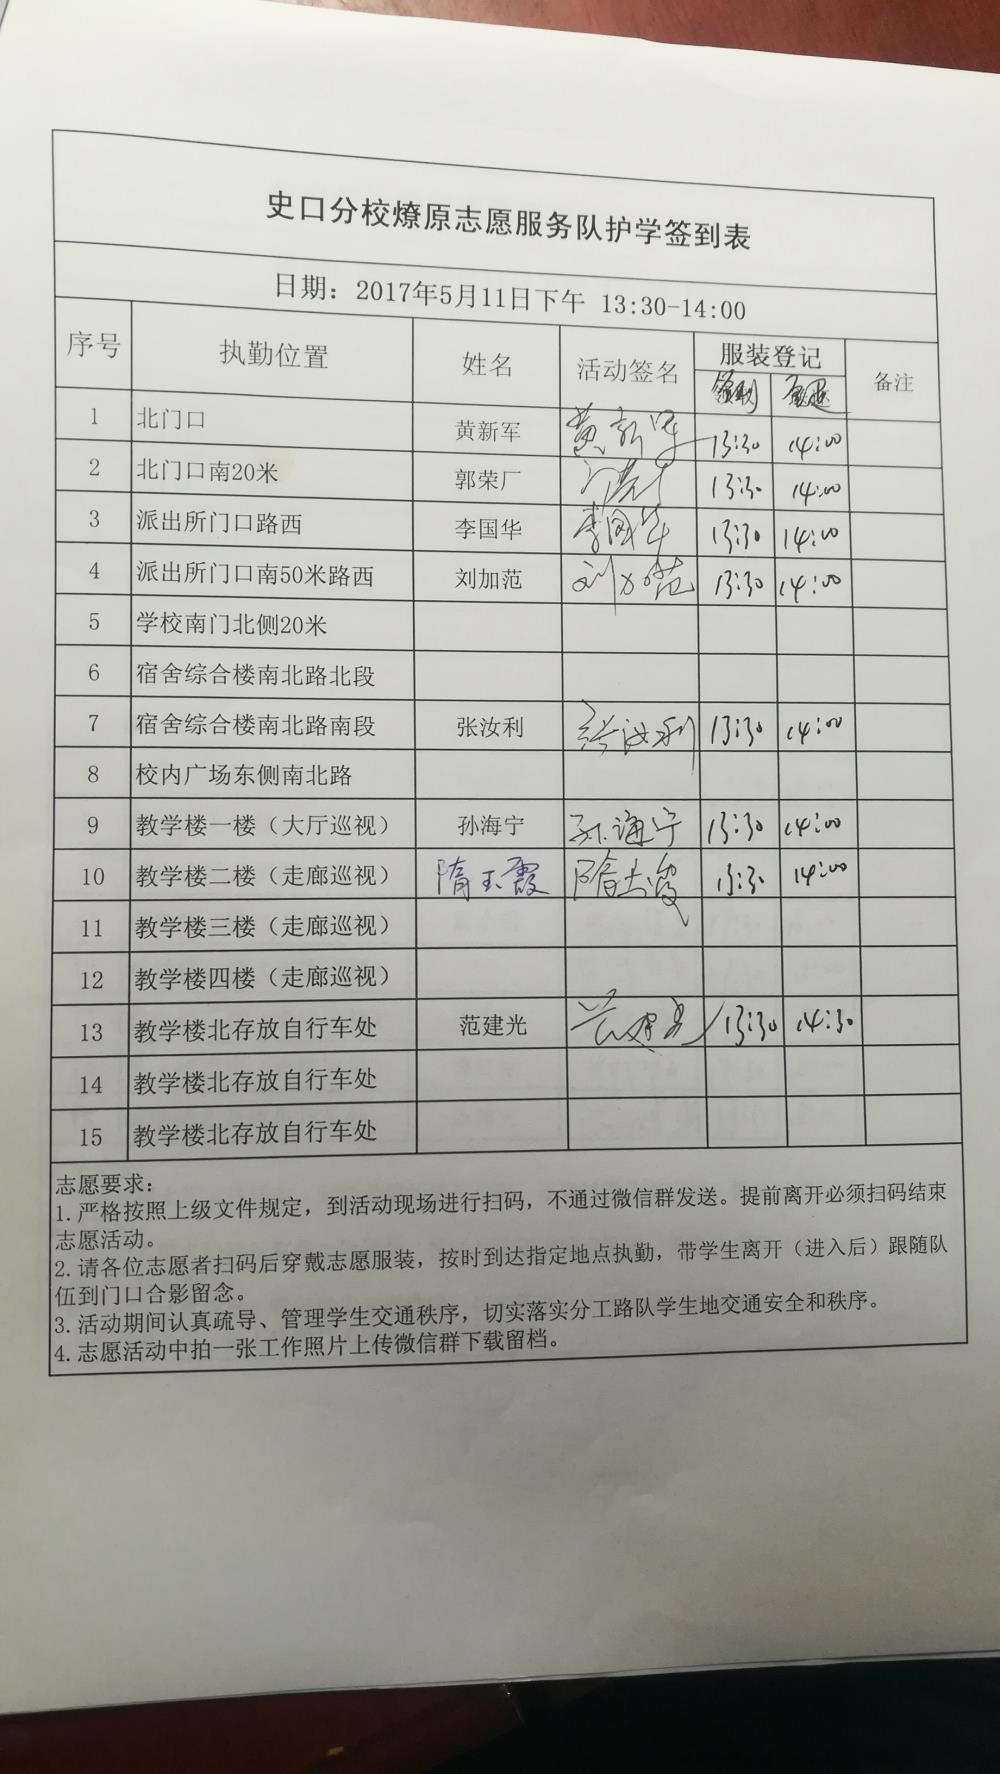 史口分校燎原志愿服务队护学签到表
日期：2017年5月11日下午 13:30-14:00
序号 执勤位置 姓名 活动签名 服装登记 备注
领取
1 北门口 黄新军 黄新军 13:30 14:00
2 北门口南20米 郭荣厂 13:30 14:00
3 派出所门口路西 李国华 李国华 13:30 14:00
4 派出所门口南50米路西 刘加范 刘加范 13:30 14:00
5 学校南门北侧20米
6 宿舍综合楼南北路北段
7 宿舍综合楼南北路南段 张汝利 张汝利 13:30 14:00
8 校内广场东侧南北路
9 教学楼一楼（大厅巡视） 孙海宁 孙海宁 13:30 14:00
10 教学楼二楼（走廊巡视） 隋玉霞 隋玉霞 13:30 14:00
11 教学楼三楼（走廊巡视）
12 教学楼四楼（走廊巡视）
13 教学楼北存放自行车处 范建光 范建光 13:30 14:30
14 教学楼北存放自行车处
15 教学楼北存放自行车处
志愿要求：
1.严格按照上级文件规定，到活动现场进行扫码，不通过微信群发送。提前离开必须扫码结束
志愿活动。
2.请各位志愿者扫码后穿戴志愿服装，按时到达指定地点执勤，带学生离开（进入后）跟随队
伍到门口合影留念。
3.活动期间认真疏导、管理学生交通秩序，切实落实分工路队学生地交通安全和秩序。
4.志愿活动中拍一张工作照片上传微信群下载留档。